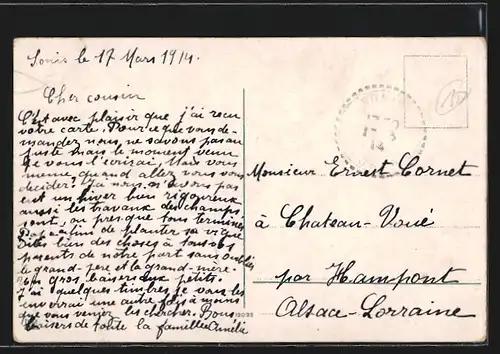 Sonis le 17 Mars 1914.
Cher cousin
C'est avec plaisir que j'ai recu
votre carte. Pour ce que vous de-
mandez nous ne savons pas au
juste mais le moment venu
je vous l'ecrirai, Mais vous
meme, quand allez vous vous
decider? Ici nous n'avons pas
eut un hiver bien rigoureux
aussi les travaux des champs
sont, ou presque tous terminés
Papa fini de planter sa vigne
Dites bien des choses à tous vos
parents de notre part sans oublier
le grand-père et la grand-mère.
Un gros baisers aux petits.
J'ai quelques timbres je vous les
enverrai une autre fois à moins
que vous veniez les chercher. Bons
baisers de toute la famille Amélie
Monsieur Ernest Cornet
à Chateau-Voué
par Hampont
Alsace-Lorraine
17-3
14
10